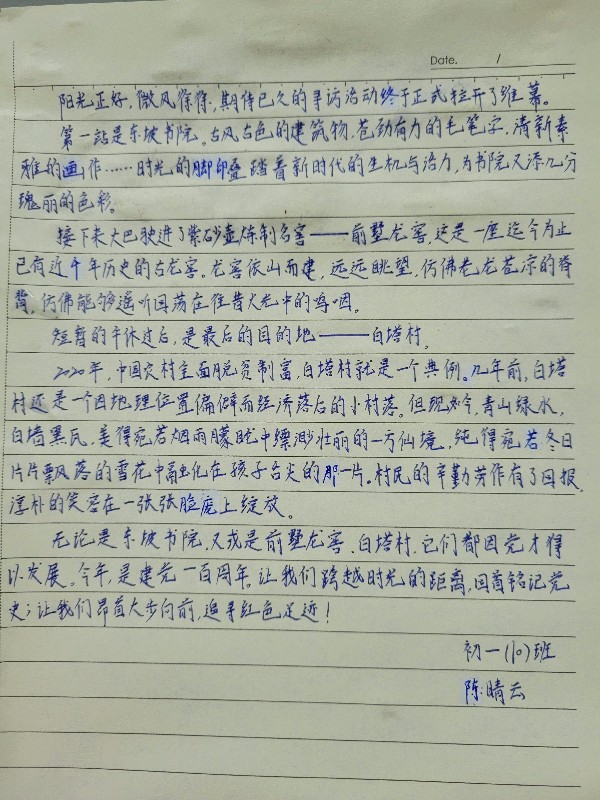 Date. /
阳光正好,微风徐徐,期待已久的寻访活动终于正式拉开了帷幕。
第一站是东坡书院。古风古色的建筑物,苍劲有力的毛笔字,清新素
雅的画作……时光的脚印叠踏着新时代的生机与活力,为书院又添几分
瑰丽的色彩。
接下来大巴驶进了紫砂壶炼制名窑——前墅龙窑,这是一座迄今为止
已有近千年历史的古龙窑。龙窑依山而建,远远眺望,仿佛老龙苍凉的脊
背,仿佛能够遥听回荡在往昔火光中的呜咽。
短暂的午休过后,是最后的目的地——白塔村。
2020年,中国农村全面脱贫制富,白塔村就是一个典例。几年前,白塔
村还是一个因地理位置偏僻而经济落后的小村落。但现如今,青山绿水,
白墙黑瓦,美得宛若烟雨朦胧中缥渺壮丽的一方仙境,纯得宛若冬日
片片飘落的雪花中融化在孩子舌尖的那一片。村民的辛勤劳作有了回报,
淳朴的笑容在一张张脸庞上绽放。
无论是东坡书院,又或是前墅龙窑、白塔村,它们都因党才得
以发展。今年,是建党一百周年。让我们跨越时光的距离,回首铭记党
史;让我们昂首大步向前,追寻红色足迹!
初一(10)班
陈晴云